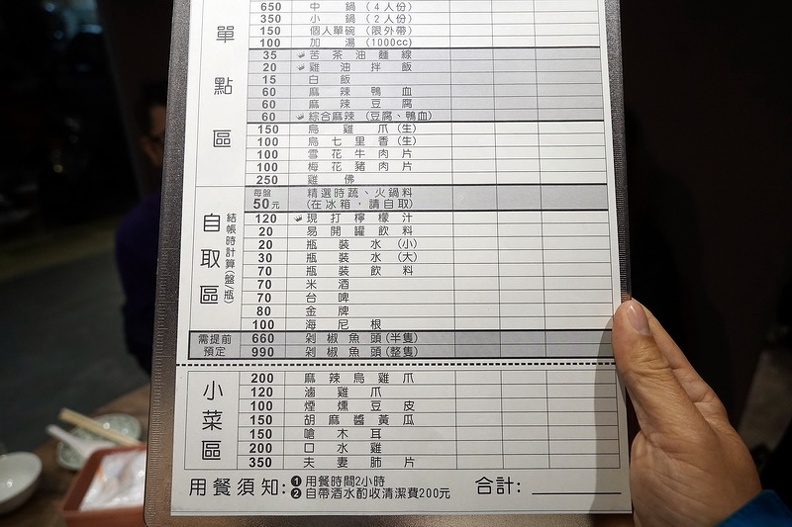 單點區
650 中鍋(4人份)
350 小鍋(2人份)
150 個人單碗(限外帶)
100 加湯(1000cc)
35 苦茶油麵線
20 雞油拌飯
15 白飯
60 麻辣鴨血
60 麻辣豆腐
60 綜合麻辣(豆腐、鴨血)
150 烏雞爪(生)
100 烏七里香(生)
100 雪花牛肉片
100 梅花豬肉片
250 雞佛
自取區
結帳時計算(盤/瓶)
每盤50元 精選時蔬、火鍋料
(在冰箱,請自取)
120 現打檸檬汁
20 易開罐飲料
20 瓶裝水(小)
30 瓶裝水(大)
70 瓶裝飲料
70 米酒
70 台啤
80 金牌
100 海尼根
需提前預定
660 剁椒魚頭(半隻)
990 剁椒魚頭(整隻)
小菜區
200 麻辣烏雞爪
120 滷雞爪
100 煙燻豆皮
150 胡麻醬黃瓜
150 嗆木耳
200 口水雞
350 夫妻肺片
用餐須知:❶用餐時間2小時
❷自帶酒水酌收清潔費200元
合計: